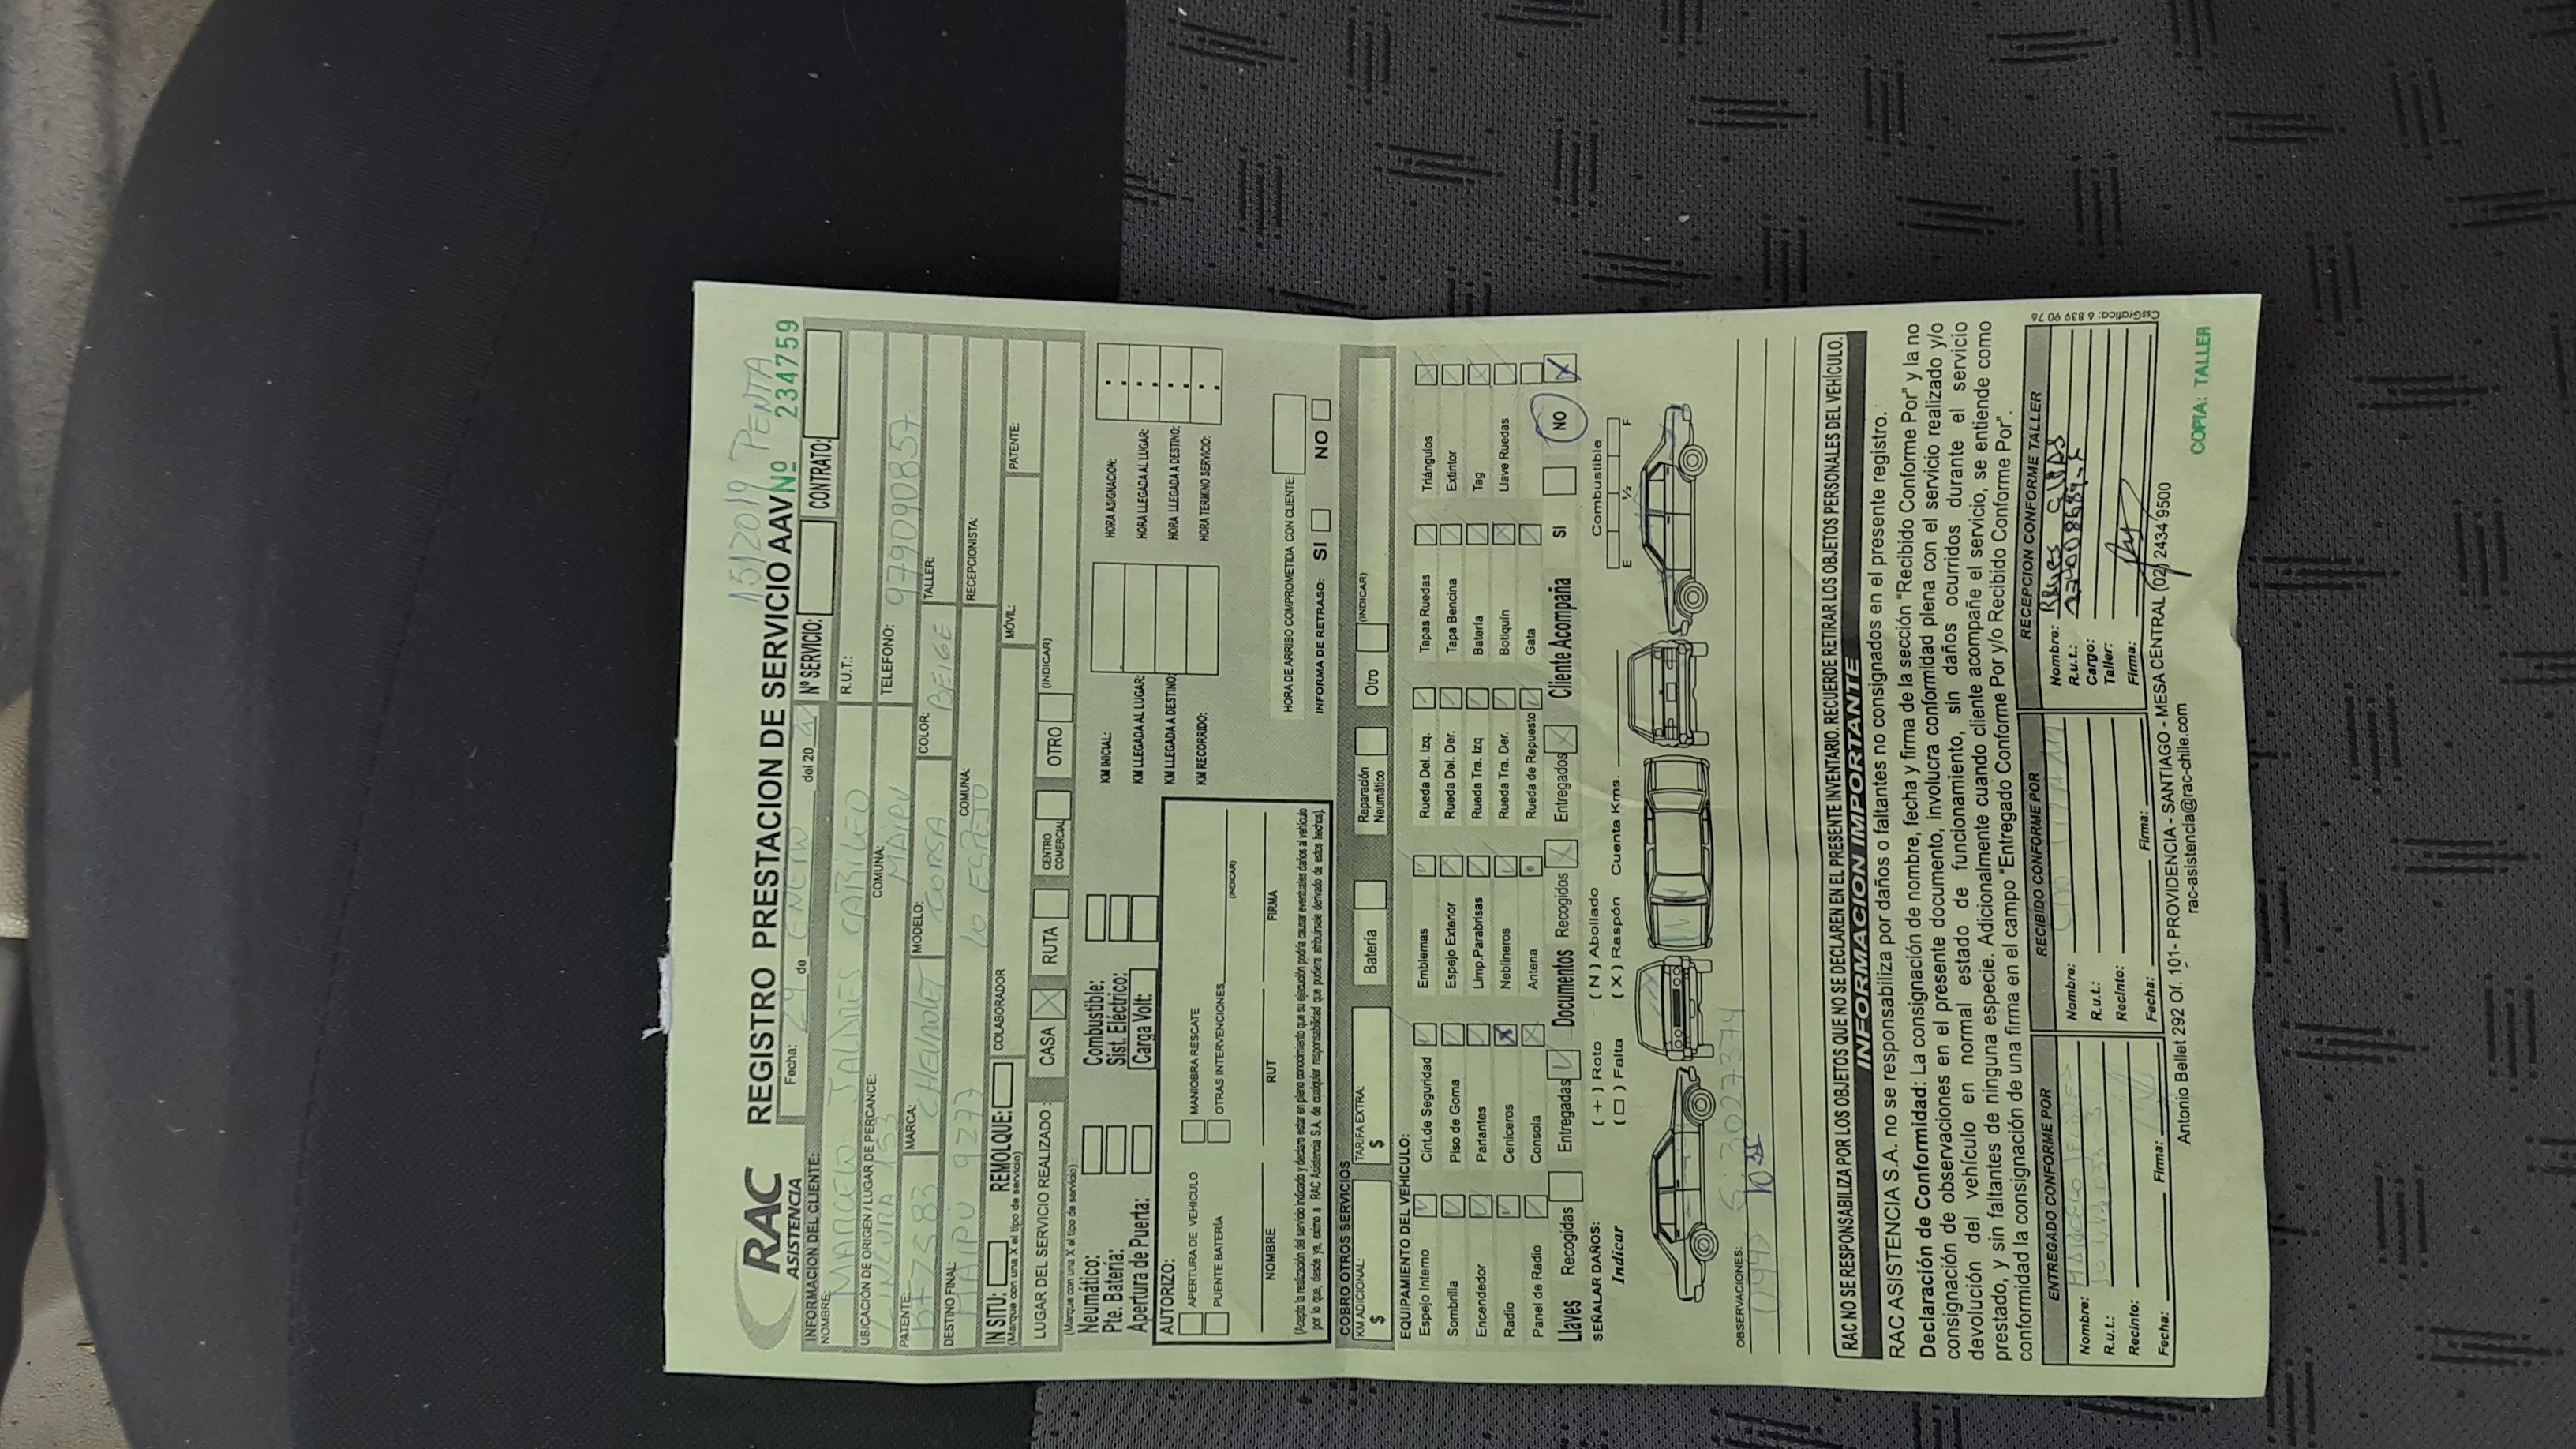 RAC
ASISTENCIA
1512019 PENTA
REGISTRO PRESTACION DE SERVICIO AAV Nº 2347759
Fecha: 29 de ENERO del 20 Nº SERVICIO: CONTRATO:
INFORMACION DEL CLIENTE:
NOMBRE: MARCELO R.U.T.:
UBICACIÓN DE ORIGEN / LUGAR DE PERCANCE: COMUNA: MAIPU TELEFONO: 979090857
PATENTE: MARCA: CHEVROLET MODELO: CORSA COLOR: BEIGE TALLER:
DESTINO FINAL: MAIPU 9277 COMUNA: LO ESPEJO RECEPCIONISTA:
IN SITU: REMOLQUE: COLABORADOR MÓVIL: PATENTE:
(Marque con una X el tipo de servicio)
LUGAR DEL SERVICIO REALIZADO: CASA X RUTA CENTRO COMERCIAL OTRO (INDICAR)
(Marque con una X el tipo de servicio)
Neumático: Combustible: KM INICIAL: HORA ASIGNACION:
Pte. Batería: Sist. Eléctrico: KM LLEGADA AL LUGAR: HORA LLEGADA AL LUGAR:
Apertura de Puerta: Carga Volt: KM LLEGADA A DESTINO: HORA LLEGADA A DESTINO:
KM RECORRIDO: HORA TERMINO SERVICIO:
AUTORIZO:
APERTURA DE VEHICULO MANIOBRA RESCATE
PUENTE BATERÍA OTRAS INTERVENCIONES (INDICAR)
HORA DE ARRIBO COMPROMETIDA CON CLIENTE:
INFORMA DE RETRASO: SI NO
NOMBRE RUT FIRMA
(Acepto la realización del servicio indicado y declaro estar en pleno conocimiento que su ejecución podría causar eventuales daños al vehículo
por lo que, desde ya, eximo a RAC Asistencia S.A. de cualquier responsabilidad que pudiera atribuirsele derivado de estos hechos).
COBRO OTROS SERVICIOS
KM ADICIONAL: $ TARIFA EXTRA: $ Batería Reparación Neumático Otro (INDICAR)
EQUIPAMIENTO DEL VEHICULO:
Espejo Interno Cint.de Seguridad Emblemas Rueda Del. Izq. Tapas Ruedas Triángulos
Sombrilla Piso de Goma Espejo Exterior Rueda Del. Der. Tapa Bencina Extintor
Encendedor Parlantes Limp.Parabrisas Rueda Tra. Izq Batería Tag
Radio Ceniceros Neblineros Rueda Tra. Der. Botiquín Llave Ruedas
Panel de Radio Consola Antena Rueda de Repuesto Gata
Llaves Recogidas Entregadas Documentos Recogidos Entregados Cliente Acompaña SI NO
SEÑALAR DAÑOS: ( + ) Roto ( N ) Abollado Combustible
Indicar ( □ ) Falta ( X ) Raspón Cuenta Kms. E ½ F
OBSERVACIONES: S: 3027374
RAC NO SE RESPONSABILIZA POR LOS OBJETOS QUE NO SE DECLAREN EN EL PRESENTE INVENTARIO. RECUERDE RETIRAR LOS OBJETOS PERSONALES DEL VEHÍCULO.
INFORMACION IMPORTANTE
RAC ASISTENCIA S.A. no se responsabiliza por daños o faltantes no consignados en el presente registro.
Declaración de Conformidad: La consignación de nombre, fecha y firma de la sección "Recibido Conforme Por" y la no
consignación de observaciones en el presente documento, involucra conformidad plena con el servicio realizado y/o
devolución del vehículo en normal estado de funcionamiento, sin daños ocurridos durante el servicio
prestado, y sin faltantes de ninguna especie. Adicionalmente cuando cliente acompañe el servicio, se entiende como
conformidad la consignación de una firma en el campo "Entregado Conforme Por y/o Recibido Conforme Por".
ENTREGADO CONFORME POR RECIBIDO CONFORME POR RECEPCION CONFORME TALLER
Nombre: MARCELO Nombre: Nombre:
R.u.t.: R.u.t.: R.u.t.:
Recinto: Recinto: Cargo:
Taller:
Fecha: Firma: Fecha: Firma: Firma:
Antonio Bellet 292 Of. 101- PROVIDENCIA - SANTIAGO - MESA CENTRAL (02) 2434 9500
rac-asistencia@rac-chile.com
COPIA: TALLER
CstGrafica: 6 839 90 76